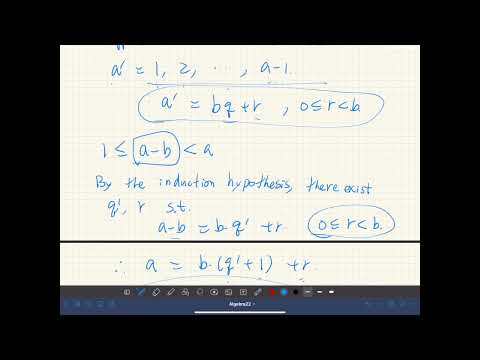 a' = 1, 2, ⋯, a-1.
a' = bq + r , 0≤r<b.
1 ≤ a-b < a
By the induction hypothesis, there exist
q', r s.t.
a-b = b·q' + r. 0≤r<b.
∴ a = b·(q'+1) + r.
Algebra22